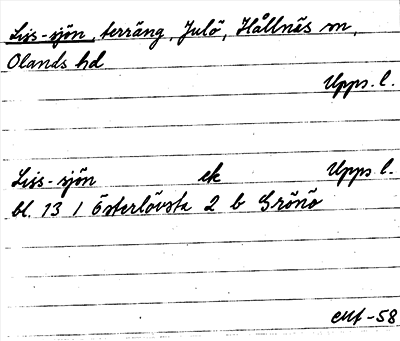 Liss-sjön, terräng, Julö, Hållnäs sn,
Olands hd
Upps. l.
Liss-sjön ek Upps l.
bl. 13 I Österlövsta 2 b Grönö
-58